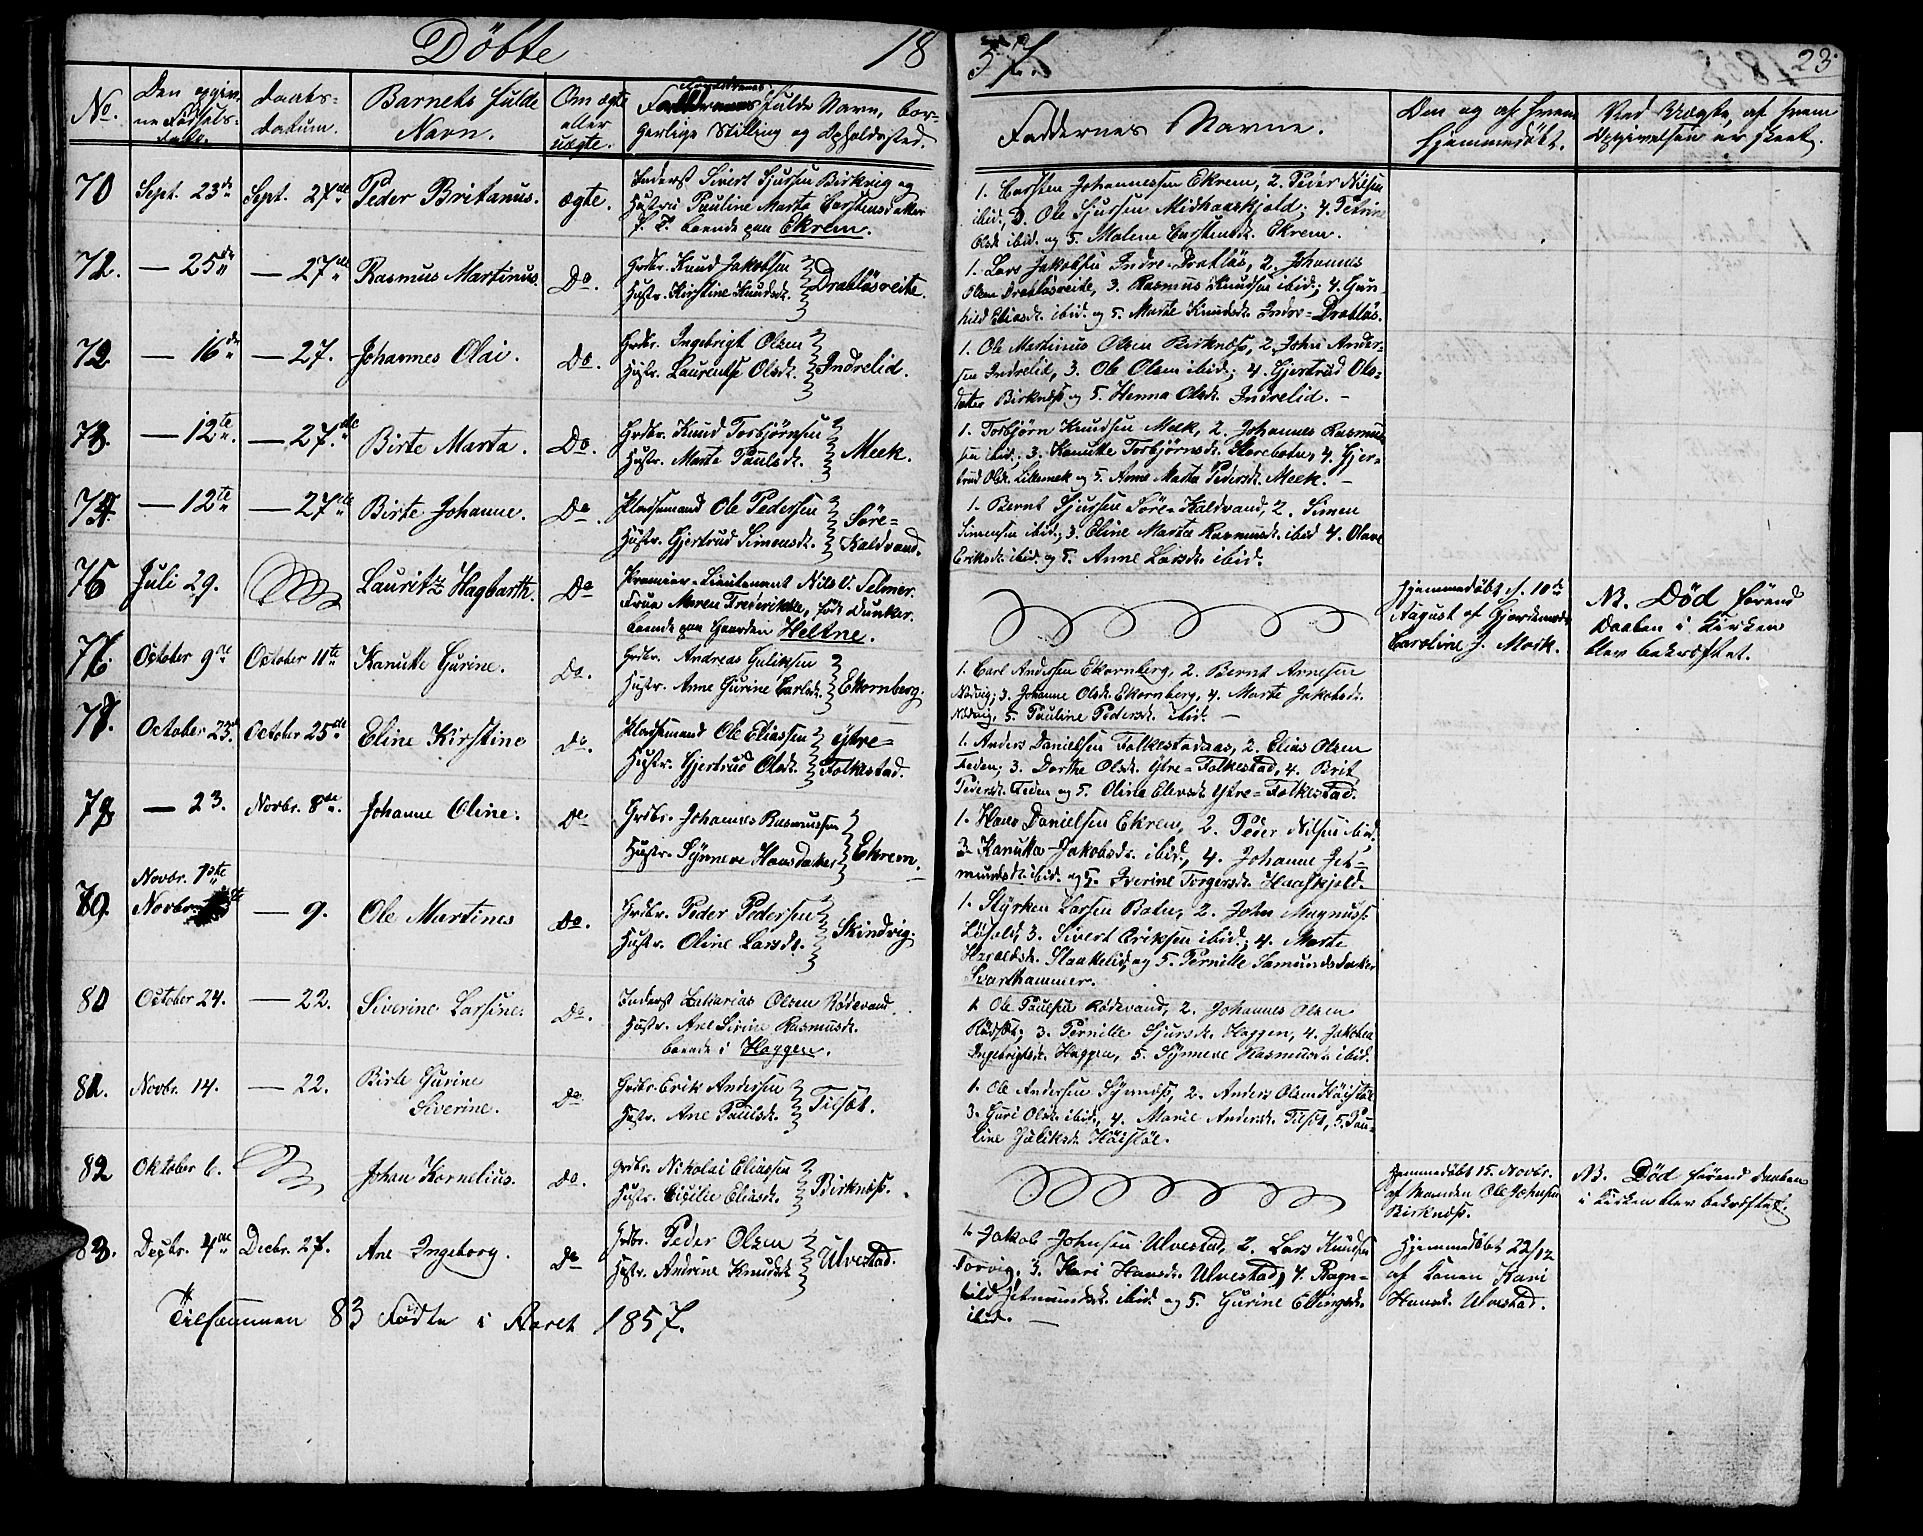 Döbte 18
57. 23.
No. Den opgivne Fødsels-Dato. Daabs-datum. Barnets fulde Navn. Om ægte eller uægte. Forældrenes fulde Navn, borgerlige Stilling og Opholdssted.
Faddernes Navne. Den og af hvem hjemmedøbt. Ved Uægte, af hvem Opgivelsen er skeet.
70 Sept. 23de Sept. 27de Peder Britanus. ægte. Inderst Sivert Sjursen Birkvig og
Hustru Pauline Marta Carstensdatter
P. T. boende paa Ekrem.
1. Carsten Johannessen Ekrem, 2. Peder Nilsen
ibid; 3. Ole Sjursen Midhaaskjold; 4. Petrine
Olsdr. ibid. og 5. Malene Carstensdr. Ekrem.
71. — 25de — 27de Rasmus Martinus. Do. Grdbr. Knud Jakobsen
Hustr. Kirstine Knudsdr. Drabløsreite.
1. Lars Jakobsen Indre-Drabløs, 2. Johannes
Olsen Drabløsreite, 3. Rasmus Knudsen ibid; 4. Gunhild
Eliasdr. ibid. og 5. Marte Knudsdr. Indre-Drabløs.
72. — 16de — 27. Johannes Olai. Do. Grdbr. Ingebrigt Olsen
Hustr. Laurentse Olsdr. Indrelid.
1. Ole Martinus Olsen Birknæs, 2. John Andersen
Indrelid, 3. Ole Olsen ibid; 4. Gjertrud Olsdatter
Birknæs og 5. Henna Olsdr. Indrelid. —
73. — 12te — 27de Birte Marta. Do. Grdbr. Knud Torbjørnsen
Hustr. Marte Paulsdr. Meek.
1. Torbjørn Knudsen Meek, 2. Johannes Rasmussen
ibid; 3. Kanutte Torbjørnsdr. Storebotn, 4. Gjertrud
Olsdr. Lillemek og 5. Anne Marta Pedersdr. Meek. —
74. — 12te — 27de Birte Johanne. Do. Pladsemand Ole Pedersen
Hustr. Gjertrud Simensdr. Søre-Kaldvand.
1. Bernt Sjursen Søre-Kaldvand, 2. Simen
Simensen ibid; 3. Eline Marta Rasmusdr. ibid 4. Olave
Eriksdr. ibid. og 5. Anne Larsdr. ibid.
75 Juli 29. Lauritz Hagbarth. Do Premier-Lieutenant Nils V. Selmer.
Frue Maren Frederikke, født Dunker.
boende paa Gaarden Heltne.
Hjemmedøbt d. 10de
August af Gjordemoder
Caroline J. Mork.
NB. Død førend
Daaben i Kirken
blev bekræftet.
76. October 9de October 11te Kanutte Gurine. Do. Grdbr. Andreas Guliksen
Hustr. Anne Gurine Carlsdr. Ekornberg.
1. Carl Andersen Ekornberg, 2. Bernt Arnesen
Nødvig; 3. Johanne Olsdr. Ekornberg, 4. Marte Jakobsdr.
Nødvig, 5. Pauline Pedersdr. ibid. —
77. October 23. October 25de Eline Kirstine Do. Pladsemand Ole Eliassen
Hustr. Gjertrud Olsdr. Ytre-Folkestad.
1. Anders Danielsen Folkestadaas, 2. Elias Olsen
Feden; 3. Dorthe Olsdr. Ytre-Folkestad, 4. Brit
Pedersdr. Feden og 5. Oline Elevsdr. Ytre-Folkestad.
78 — 23. Novbr. 8de. Johanne Oline. Do. Grdbr. Johannes Rasmussen
Hustr. Synneve Hansdatter Ekrem.
1. Hans Danielsen Ekrem, 2. Peder Nilsen ibid;
3. Kanutta Jakobsdr. ibid, 4. Johanne Jetmundsdr.
ibid. og 5. Iverine Torgersdr. Haaskjold.
79. Novbr. 1ste
Novbr. — 9. Ole Martines Do. Grdbr. Peder Pedersen
Hustr. Oline Larsdr. Skindvig.
1. Styrker Larsen Botn, 2. John Magnuss.
3. Sivert Eriksen ibid; 4. Marte
og 5. Pernille Samundsdatter
Svarthammer.
80 October 24. — 22. Siverine Larsine. Do. Inderst Zakarias Olsen Rødevand
Hustr. Ane Sirine Rasmusdr.
boende i Haggen.
1. Ole Paulsen Rødevand, 2. Johannes Olsen
Rødsæt; 3. Pernille Sjursdr. Haggen, 4. Jakobea
Ingebrigtsdr. Haggen, 5. Synneve Rasmusdr. ibid.
81. Novbr. 14. — 22. Birte Gurine
Siverine. Do. Grdbr. Erik Andersen
Hustr. Ane Paulsdr. Tilsæt.
1. Ole Andersen Synnæss, 2. Anders Olsen Høistøl
3. Guri Olsdr. ibid, 4. Marie Andersdr. Tilsæt, 5. Pauline
Guliksdr. Høistøl.
82 Oktober 6. Johan Kornelius. Do. Grdbr. Nikolai Eliassen
Hustr. Cicilie Eliasdr. Birknæss.
Hjemmedøbt 15. Novbr.
af Manden Ole Johnsen
Birknæss.
NB. Død førend Daaben
i Kirken blev bekræftet.
83. Decbr. 4de Decbr. 27. Ane Ingeborg. Do Grdbr. Peder Olsen
Hustr. Andrine Knudsdr. Ulvestad.
1. Jakob Johnsen Ulvestad, 2. Lars Knudsen
Torvig; 3. Kari Hansdr. Ulvestad, 4. Ragnhild
Jetmundsdr. ibid. og 5. Gurine Ellingsdr.
ibid. —
Hjemmedøbt 22/12
af Konen Kari
Hansdr. Ulvestad.
Tilsammen 83 Fødte i Aaret 1857.